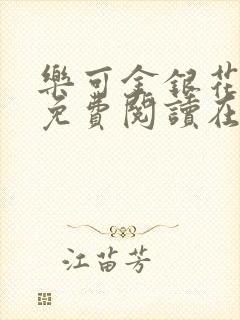 樂可金銀花
免費閱讀在
江苗芳